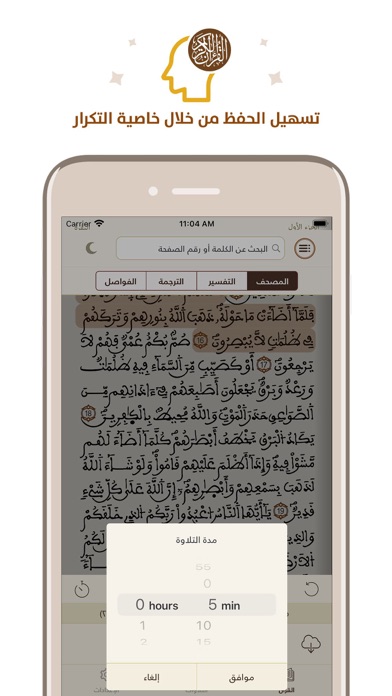 تسهيل الحفظ من خلال خاصية التكرار
Carrier
11:04 AM
الجزء الأول
البحث عن الكلمة أو رقم الصفحة
المصحف
التفسير
الترجمة
الفواصل
فلما أضاءت ما حوله ذهب الله بنورهم وتركهم
في ظلمات لا يبصرون 16 صم بكم عمي فهم لا
يرجعون 17 أو كصيب من السماء فيه ظلمات
ورعد وبرق يجعلون أصابعهم في آذانهم من
الصواعق حذر الموت والله محيط بالكافرين 18
يكاد البرق يخطف أبصارهم كلما أضاء لهم
مشوا فيه وإذا أظلم عليهم قاموا ولو شاء الله
لذهب بسمعهم وأبصارهم إن الله على كل شيء
قدير 19 يا أيها الناس اعبدوا ربكم الذي خلقكم
والذين
لكم
الأرض
مدة التلاوة
55
0
0 hours 5 min
1 10
2 15
موافق
إلغاء